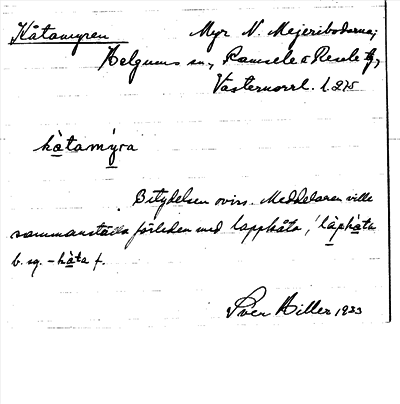 Kåtamyren Myr N. Mejeribodarna;
Helgums sn., Ramsele o Resele tg,
Västernorrl. l. 275
kàtamýra
Betydelsen oviss. Meddelaren ville
sammanställa förleden med lappkåta, / làpkàta
b. sg. - kàta f.
Hiller 1933